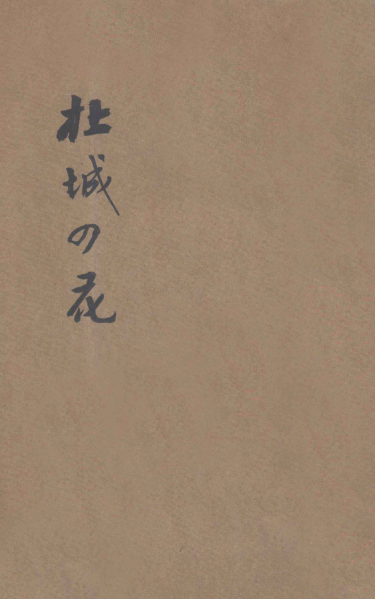 杜城の花